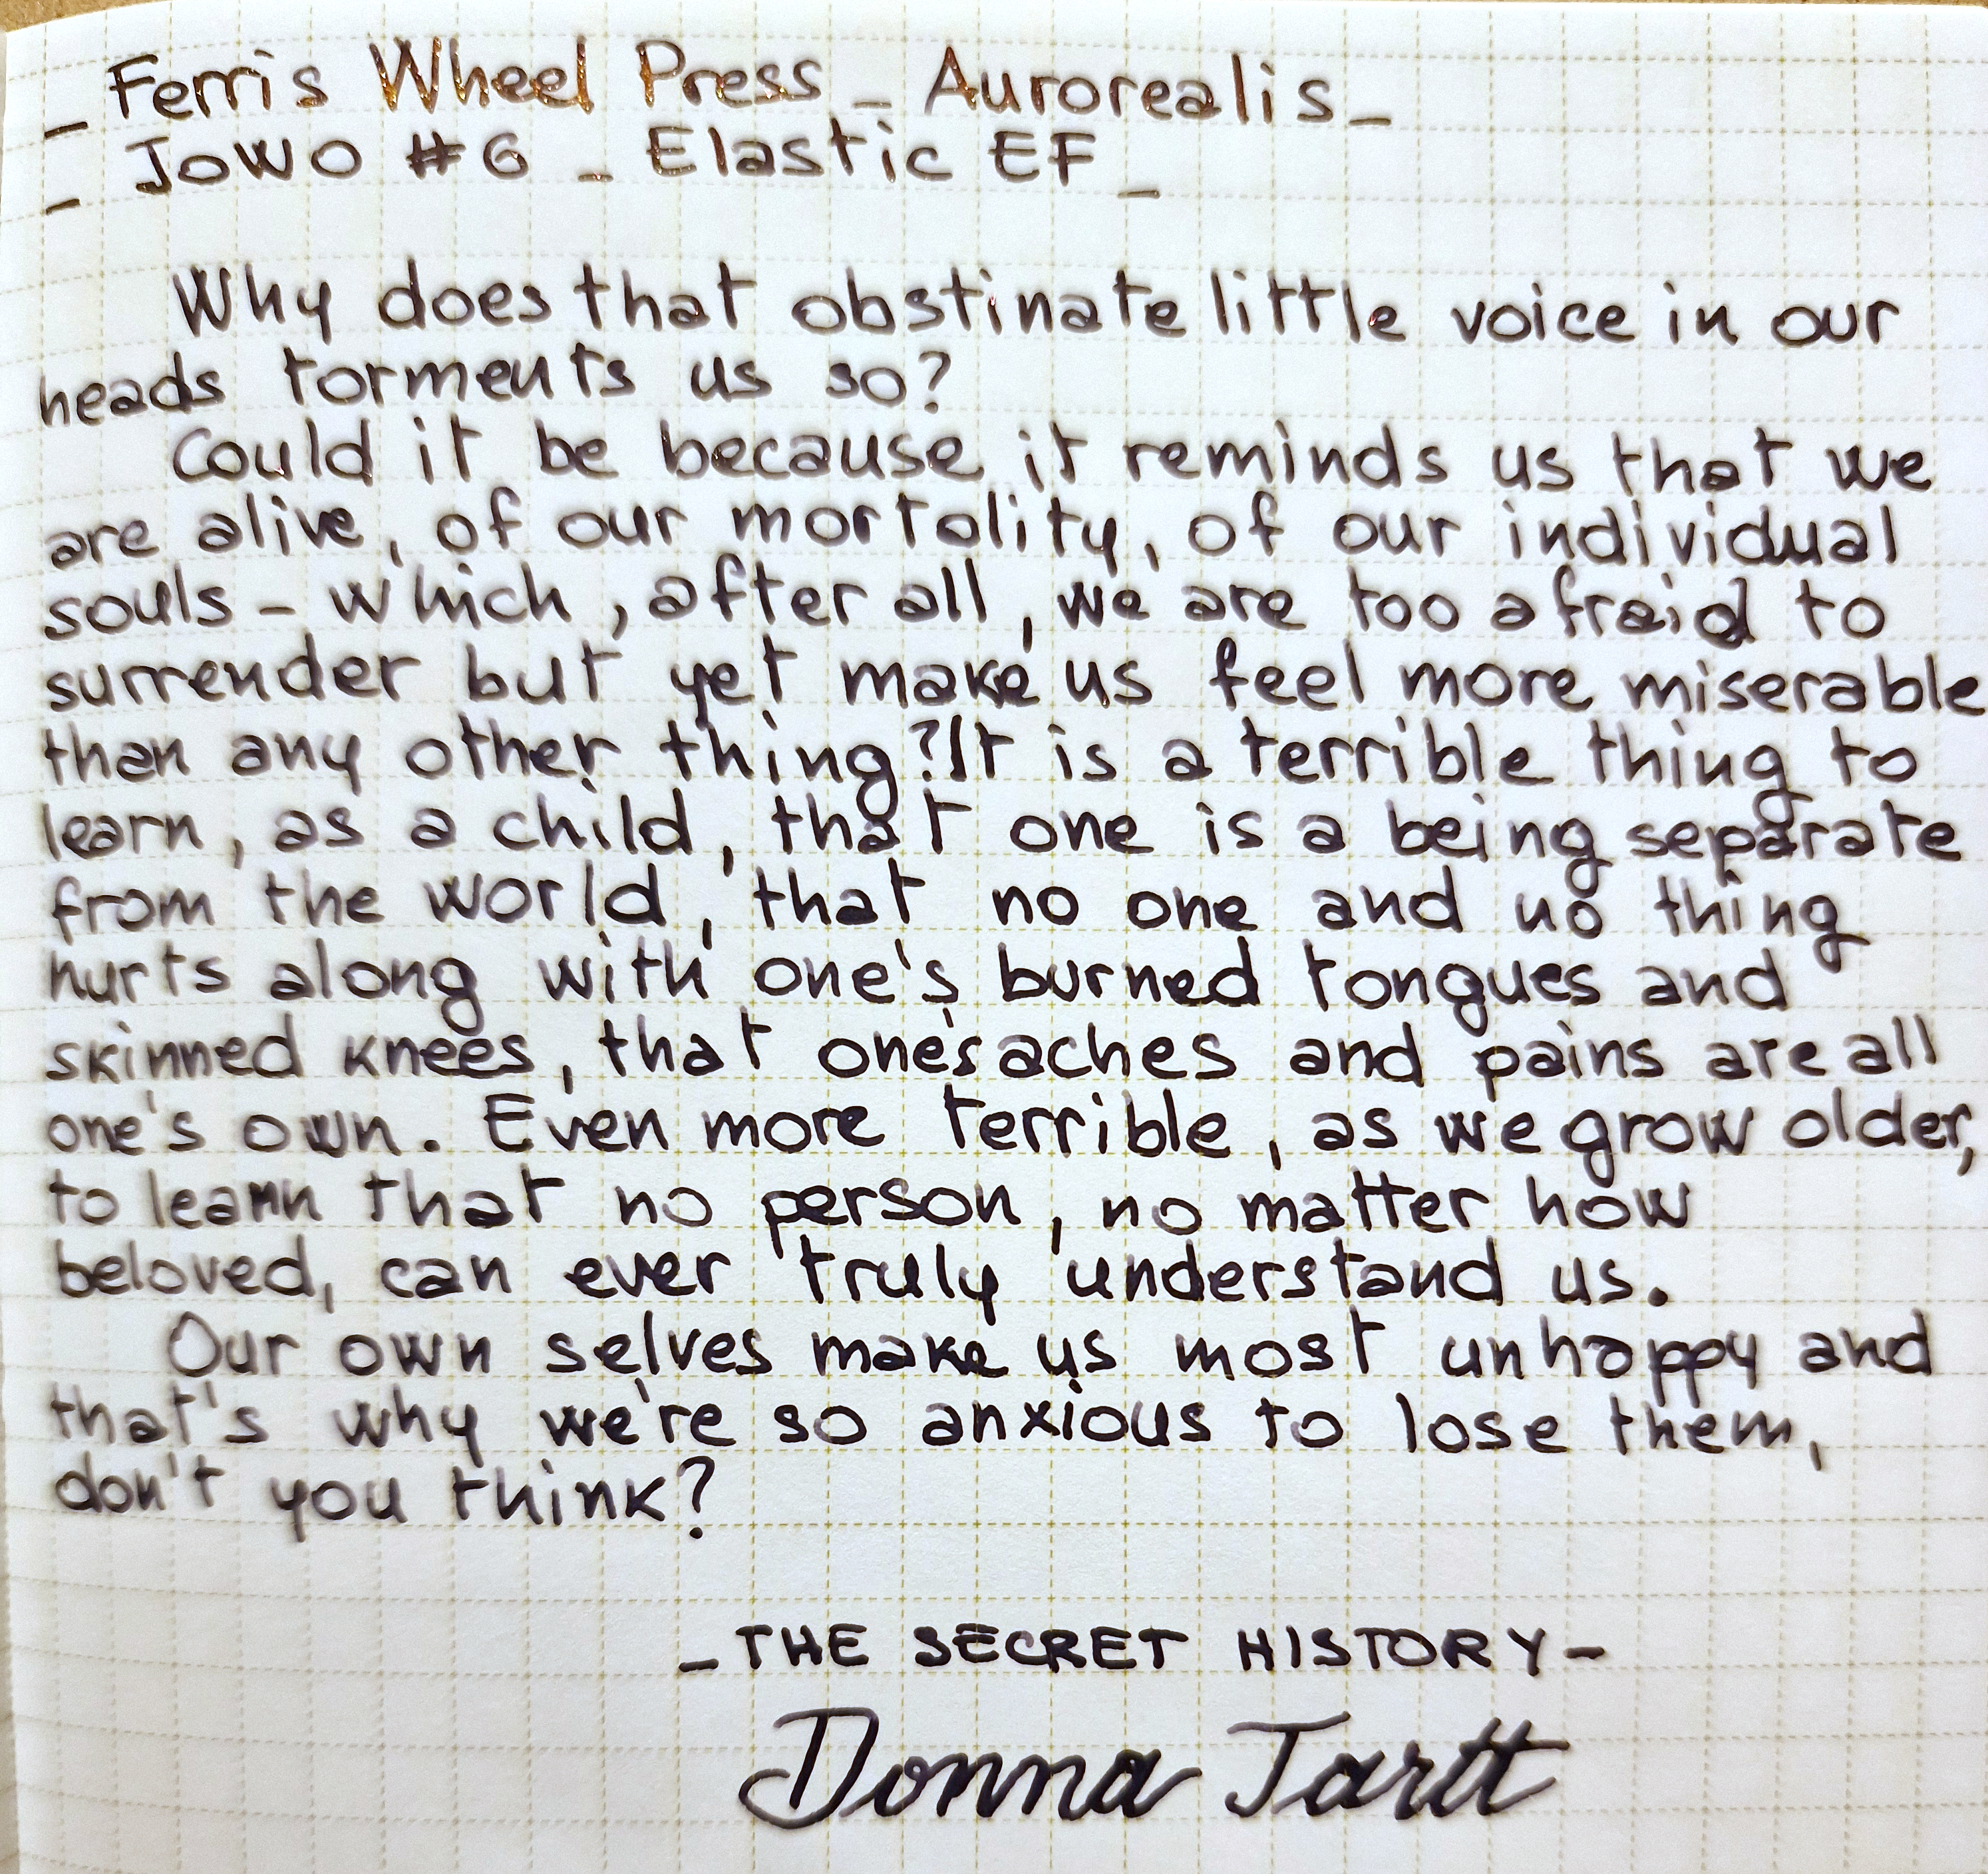 _ Ferris Wheel Press _ Aurorealis _
_ JOWO #6 _ Elastic EF _
Why does that obstinate little voice in our
heads torments us so?
Could it be because it reminds us that we
are alive, of our mortality, of our individual
souls - which, after all, we are too afraid to
surrender but yet make us feel more miserable
than any other thing? It is a terrible thing to
learn, as a child, that one is a being separate
from the world, that no one and no thing
hurts along with one's burned tongues and
skinned knees, that one's aches and pains are all
one's own. Even more terrible, as we grow older,
to learn that no person, no matter how
beloved, can ever truly understand us.
Our own selves make us most unhappy and
that's why we're so anxious to lose them,
don't you think?
_ THE SECRET HISTORY -
Donna Tartt